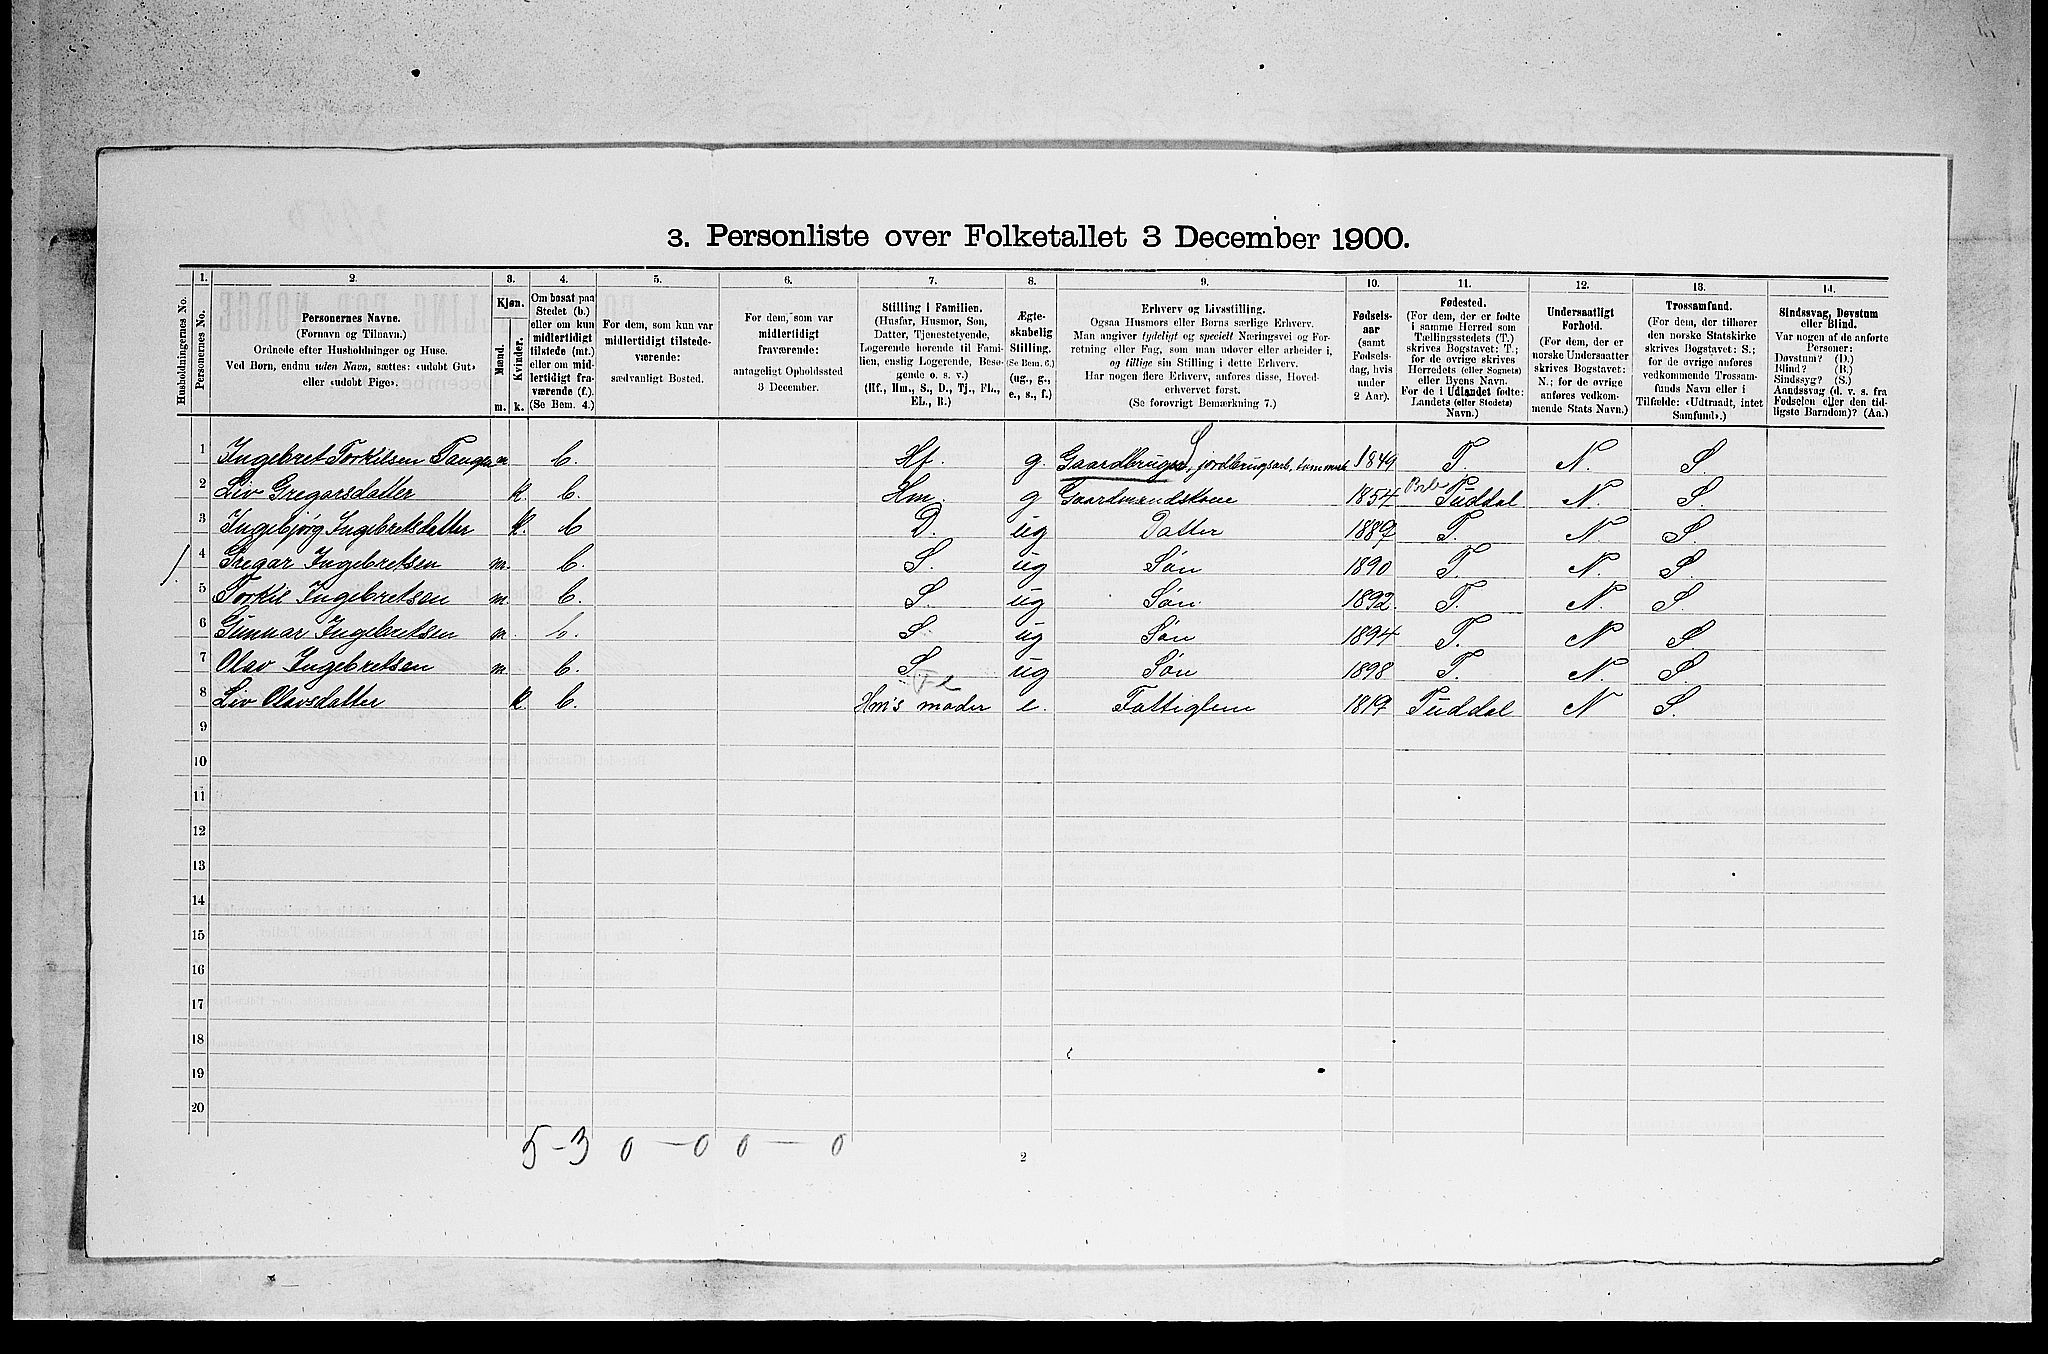 3. Personliste over Folketallet 3 December 1900.
1. 2. 3. 4. 5. 6. 7. 8. 9. 10. 11. 12. 13. 14.
Husholdningernes No.
Personernes No.
Personernes Navne.
(Fornavn og Tilnavn.)
Ordnede efter Husholdninger og Huse.
Ved Børn, endnu uden Navn, sættes: «udøbt Gut»
eller «udøbt Pige».
Kjøn.
Mænd.
Kvinder.
m. k.
Om bosat paa
Stedet (b.)
eller om kun
midlertidigt
tilstede (mt.)
eller om mid-
lertidigt fra-
værende (f.).
(Se Bem. 4.)
For dem, som kun var
midlertidigt tilstede-
værende:
sædvanligt Bosted.
For dem, som var
midlertidigt
fraværende:
antageligt Opholdssted
3 December.
Stilling i Familien.
(Husfar, Husmor, Søn,
Datter, Tjenestetyende,
Logerende hørende til Fami-
lien, enslig Logerende, Besø-
gende o. s. v.)
(Hf., Hm., S., D., Tj., FL.,
EL., B.)
Ægte-
skabelig
Stilling.
(Se Bem. 6.)
(ug., g.,
e., s., f.)
Erhverv og Livsstilling.
Ogsaa Husmors eller Børns særlige Erhverv.
Man angiver tydeligt og specielt Næringsvei og For-
retning eller Fag, som man udøver eller arbeider i,
og tillige sin Stilling i dette Erhverv.
Har nogen flere Erhverv, anføres disse, Hoved-
erhvervet først.
(Se forøvrigt Bemærkning 7.)
Fødsels-
aar
(samt
Fødsels-
dag, hvis
under
2 Aar).
Fødested.
(For dem, der er fødte
i samme Herred som
Tællingsstedets (T.)
skrives Bogstavet: T.;
for de øvrige skrives
Herredets (eller Sognets)
eller Byens Navn.
For de i Udlandet fødte:
Landets (eller Stedets)
Navn.)
Undersaatligt
Forhold.
(For dem, der er
norske Undersaatter
skrives Bogstavet:
N.; for de øvrige
anføres vedkom-
mende Stats Navn.)
Trossamfund.
(For dem, der tilhører
den norske Statskirke
skrives Bogstavet: S.;
for de øvrige anføres
vedkommende Trossam-
funds Navn eller i
Tilfælde: «Udtraadt, intet
Samfund».)
Sindssvag, Døvstum
eller Blind.
Var nogen af de anførte
Personer:
Døvstum? (D.)
Blind? (B.)
Sindssyg? (S.)
Aandssvag (d. v. s. fra
Fødselen eller den tid-
ligste Barndom)? (Aa.)
1 Ingebret Torkilsen m b. Hf. g. jordbrugsarb. 1849 T. N. S.
2 Liv Gregarsdatter k. b. Hm. g Gaardmandskone 1854 Tuddal N. S.
3 Ingebjørg Ingebretsdatter k. b D. ug Datter 1887 T. N. S.
4 Gregar Ingebretsen m. b. S. ug Søn 1890 T. N. S.
5 Torkil Ingebretsen m. b. S. ug Søn 1892 T. N. S.
6 Gunnar Ingebretsen m. b. S. ug Søn 1894 T. N S.
7 Olav Ingebretsen m b. S. ug Søn 1898 T. N. S.
8 Liv Olavsdatter k b. Hm's moder e. Fattiglem Tuddal N S.
9
10
11
12
13
14
15
16
17
18
19
20
5-3 0 - 0 0 - 0
2